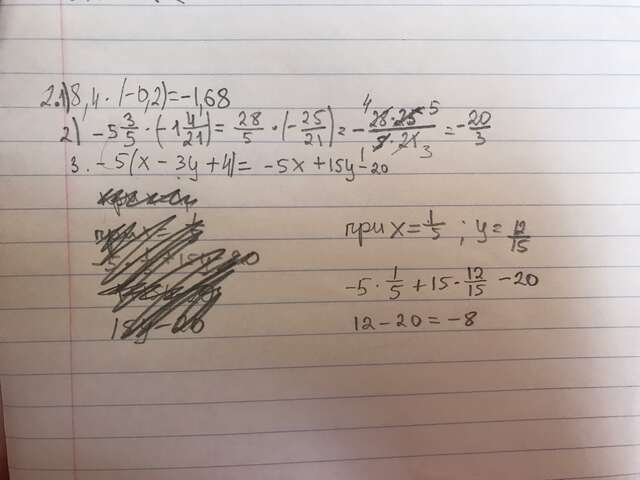 2.1) 8,4 · (-0,2) = -1,68
2) -5 3/5 · (-1 4/21) = 28/5 · (-25/21) = - 4 28 · 25 5 / 5 · 21 3 = -20/3
3. -5(x - 3y + 4) = -5x + 15y - 20
при x = 1/5 ; y = 12/15
-5 · 1/5 + 15 · 12/15 - 20
15y - 20
12 - 20 = -8